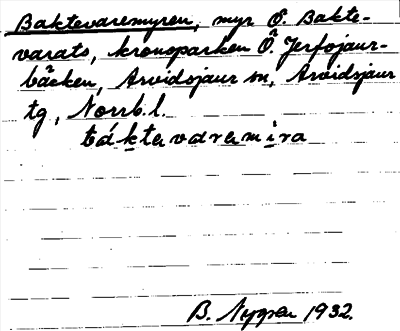 Baktevaremyren, myr Ö. Bakte-
varats, kronoparken Ö. Jerfojaur-
bäcken, Arvidsjaur sn, Arvidsjaur
tg, Norrb. l.
táktevaramira
B. Nygren 1932.